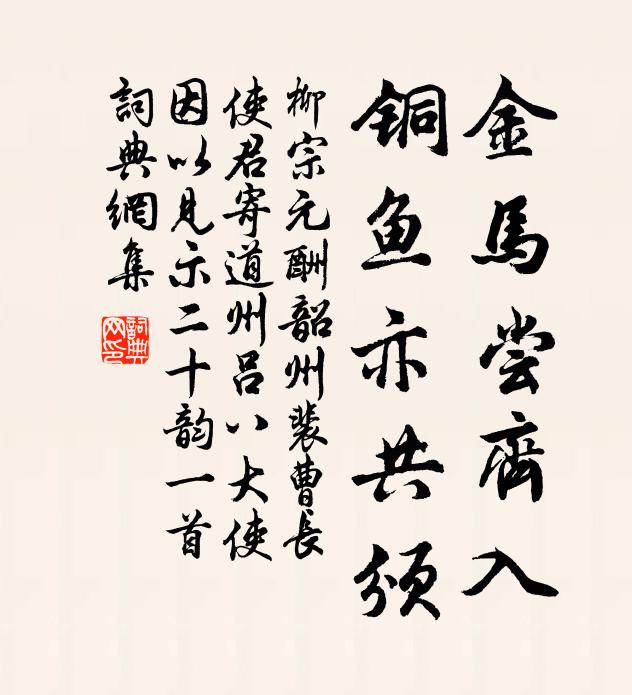 金馬尝齊入
铜鱼亦共颁
柳宗元酬韶州裴曹長
使君寄道州吕八大使
因以見示二十韵一首
詞典網集
詞典网印